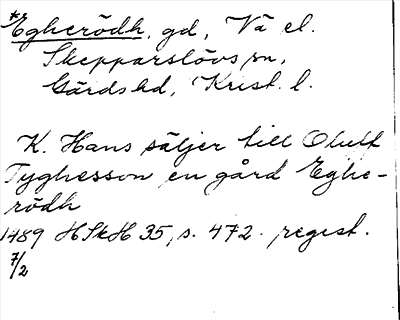 *Egherödh, gd, Vä el.
Skepparslövs sn,
Gärds hd, Krist. l.
K. Hans säljer till Oluff
Tyghesson en gård Eghe-
rödh
1489 HSkH 35, s. 472. regist.
7/2